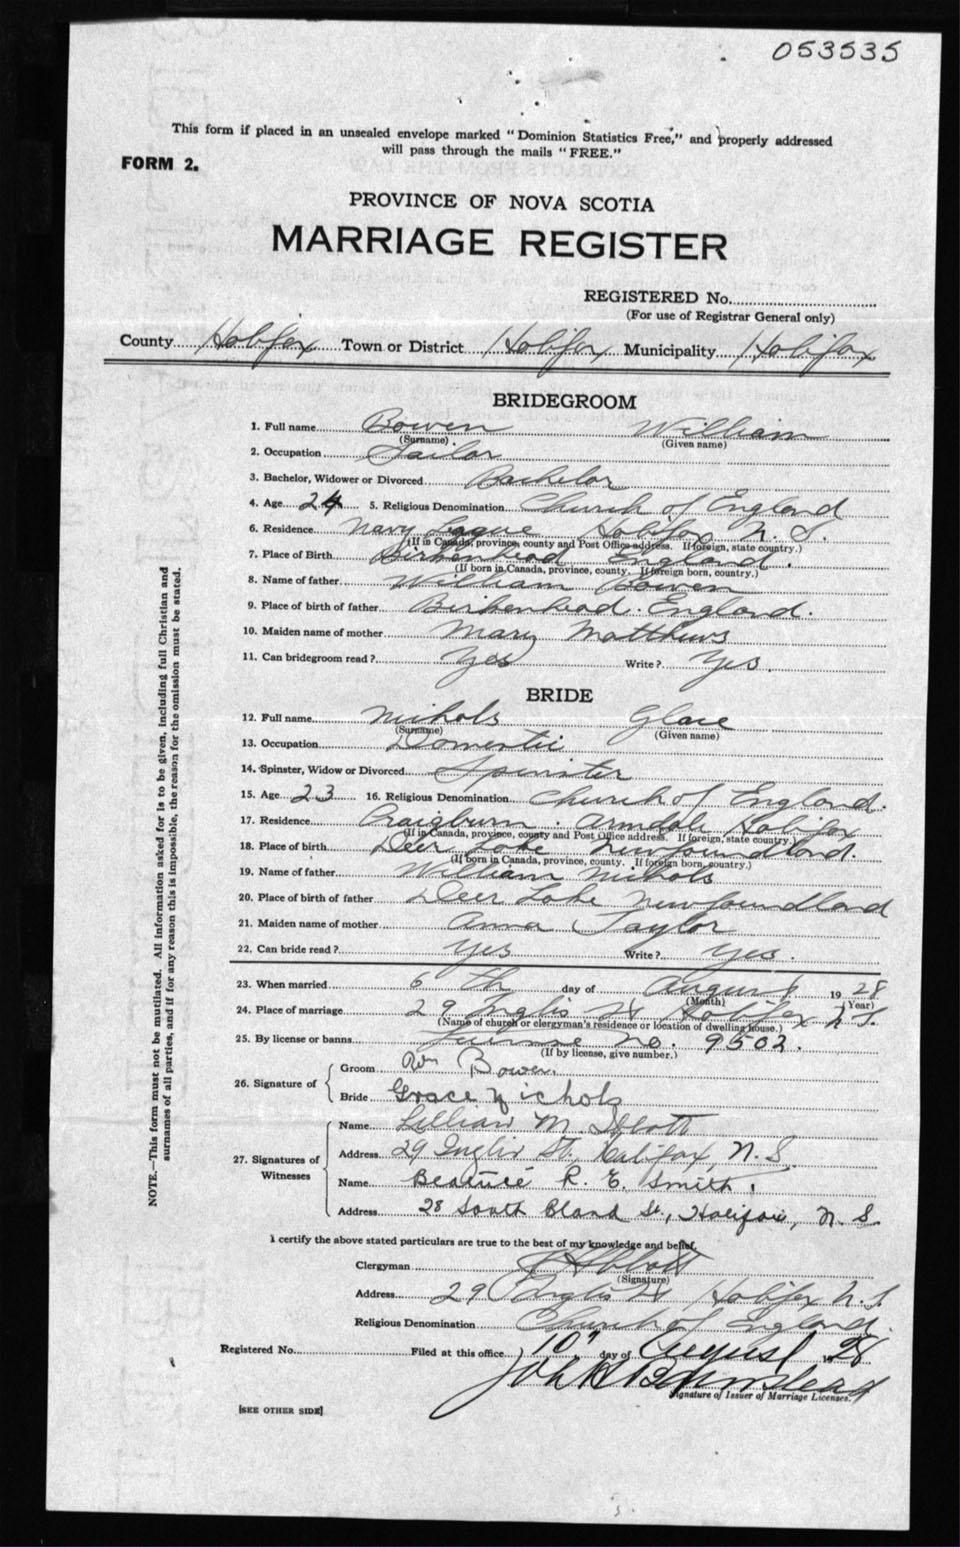 053535
This form if placed in an unsealed envelope marked "Dominion Statistics Free," and properly addressed
will pass through the mails "FREE."
FORM 2.
PROVINCE OF NOVA SCOTIA
MARRIAGE REGISTER
REGISTERED No.
(For use of Registrar General only)
County Halifax Town or District Halifax Municipality Halifax
BRIDEGROOM
1. Full name Bowen William
(Surname) (Given name)
2. Occupation Sailor
3. Bachelor, Widower or Divorced Bachelor
4. Age 24 5. Religious Denomination Church of England
6. Residence Navy League Halifax N. S.
(If in Canada, province, county and Post Office address. If foreign, state country.)
7. Place of Birth Birkenhead England.
(If born in Canada, province, county. If foreign born, country.)
8. Name of father William Bowen
9. Place of birth of father Birkenhead. England.
10. Maiden name of mother Mary Matthews
11. Can bridegroom read? Yes Write? Yes.
BRIDE
12. Full name Nichols Grace
(Surname) (Given name)
13. Occupation Domestic
14. Spinster, Widow or Divorced Spinster
15. Age 23 16. Religious Denomination Church of England.
17. Residence Craigburn. Armdale Halifax
(If in Canada, province, county and Post Office address. If foreign, state country.)
18. Place of birth Deer Lake Newfoundland.
(If born in Canada, province, county. If foreign born, country.)
19. Name of father William Nichols
20. Place of birth of father Deer Lake Newfoundland
21. Maiden name of mother Anna Taylor
22. Can bride read? Yes Write? Yes.
23. When married 6th day of August 1928
(Month) (Year)
24. Place of marriage 29 Inglis St Halifax N.S.
(Name of church or clergyman's residence or location of dwelling house.)
25. By license or banns License no. 9502.
(If by license, give number.)
26. Signature of
Groom Wm Bowen.
Bride Grace Nichols
27. Signatures of Witnesses
Name Lillian M. Abbott
Address 29 Inglis St., Halifax, N.S.
Name Beatrice R. E. Smith.
Address 28 South Bland St., Halifax, N. S.
I certify the above stated particulars are true to the best of my knowledge and belief.
Clergyman Abbott
(Signature)
Address 29 Inglis St Halifax N.S.
Religious Denomination Church of England.
Registered No. Filed at this office 10" day of August 28
Signature of Issuer of Marriage Licenses.
[SEE OTHER SIDE]
NOTE.—This form must not be mutilated. All information asked for is to be given, including full Christian and
surnames of all parties, and if for any reason this is impossible, the reason for the omission must be stated.